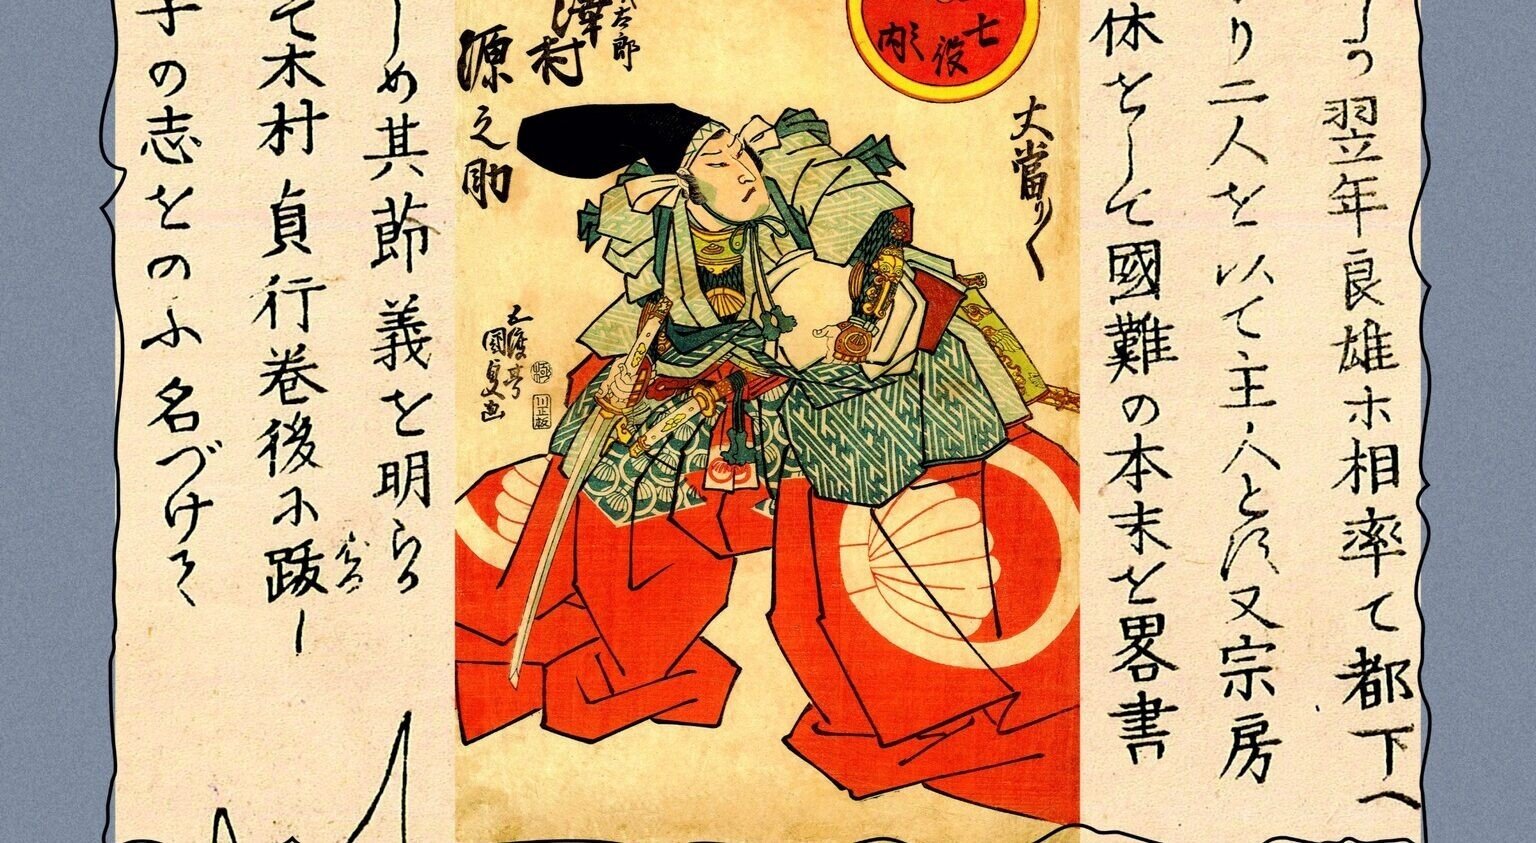 翌年良雄ホ相率て都下へ
り二人を以て主人と 又宗房
休をして國難の本末を畧書
七
役
内
大當り〱
澤村
源之助
五渡亭
國貞画
極
川正板
しめ其莭義を明らか
て木村貞行巻後に跋し
の志をのふ名づけて